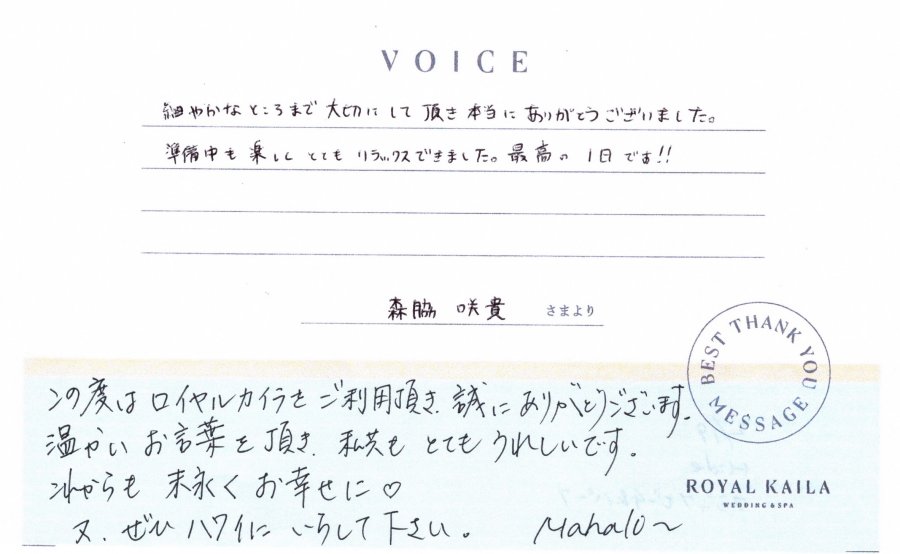 VOICE
細やかなところまで大切にして頂き本当にありがとうございました。
準備中も楽しくとてもリラックスできました。最高の1日です!!
森脇 咲貴 さまより
BEST THANK YOU MESSAGE
この度はロイヤルカイラをご利用頂き、誠にありがとうございます。
温かいお言葉を頂き、私共もとてもうれしいです。
これからも末永くお幸せに♡
又、ぜひハワイにいらして下さい。 Mahalo~
ROYAL KAILA
WEDDING & SPA